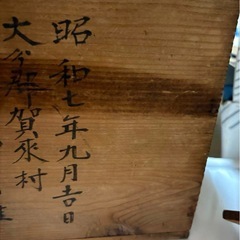 昭和七年九月吉日
大分郡賀来村